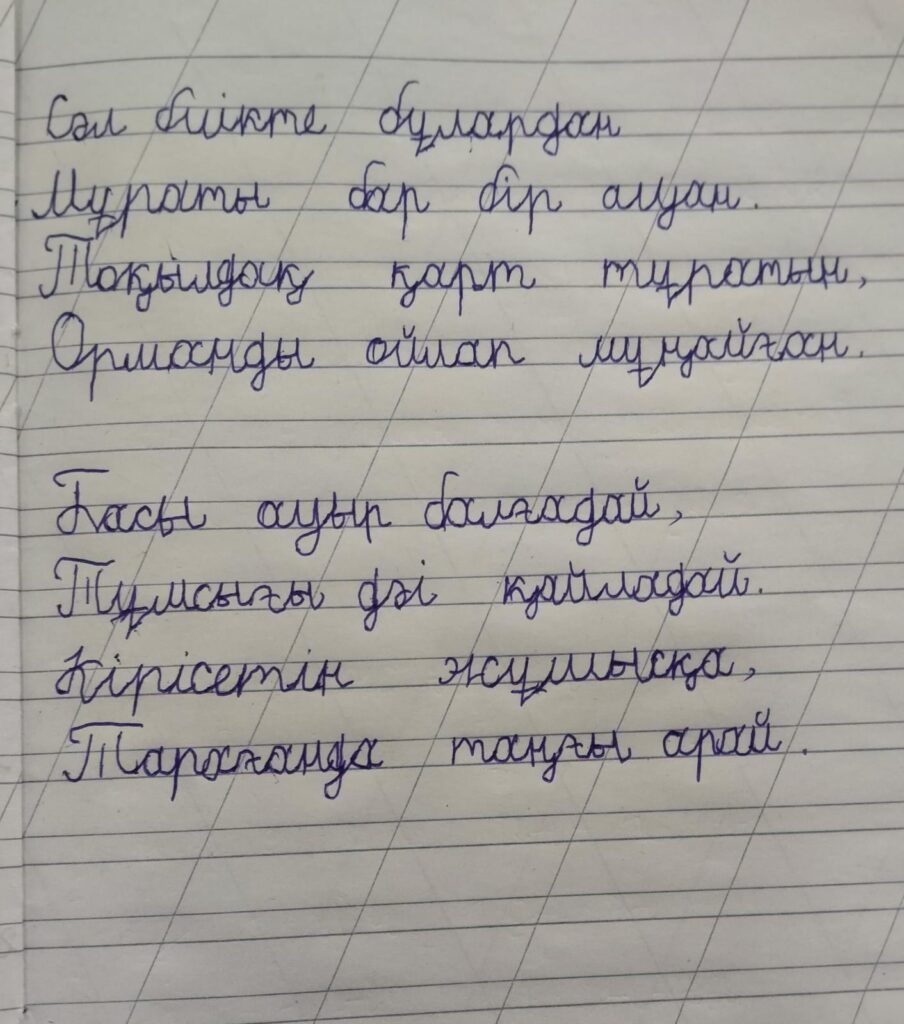 Сәл биікте бұлардан
Мұраты бар бір алуан.
Тоқылдақ қарт тұратын,
Орманды ойлап мұңайған.
Басы ауыр балғадай,
Тұмсығы дәі қайладай.
Кірісетін жұмысқа,
Тарағанда таңғы арай.